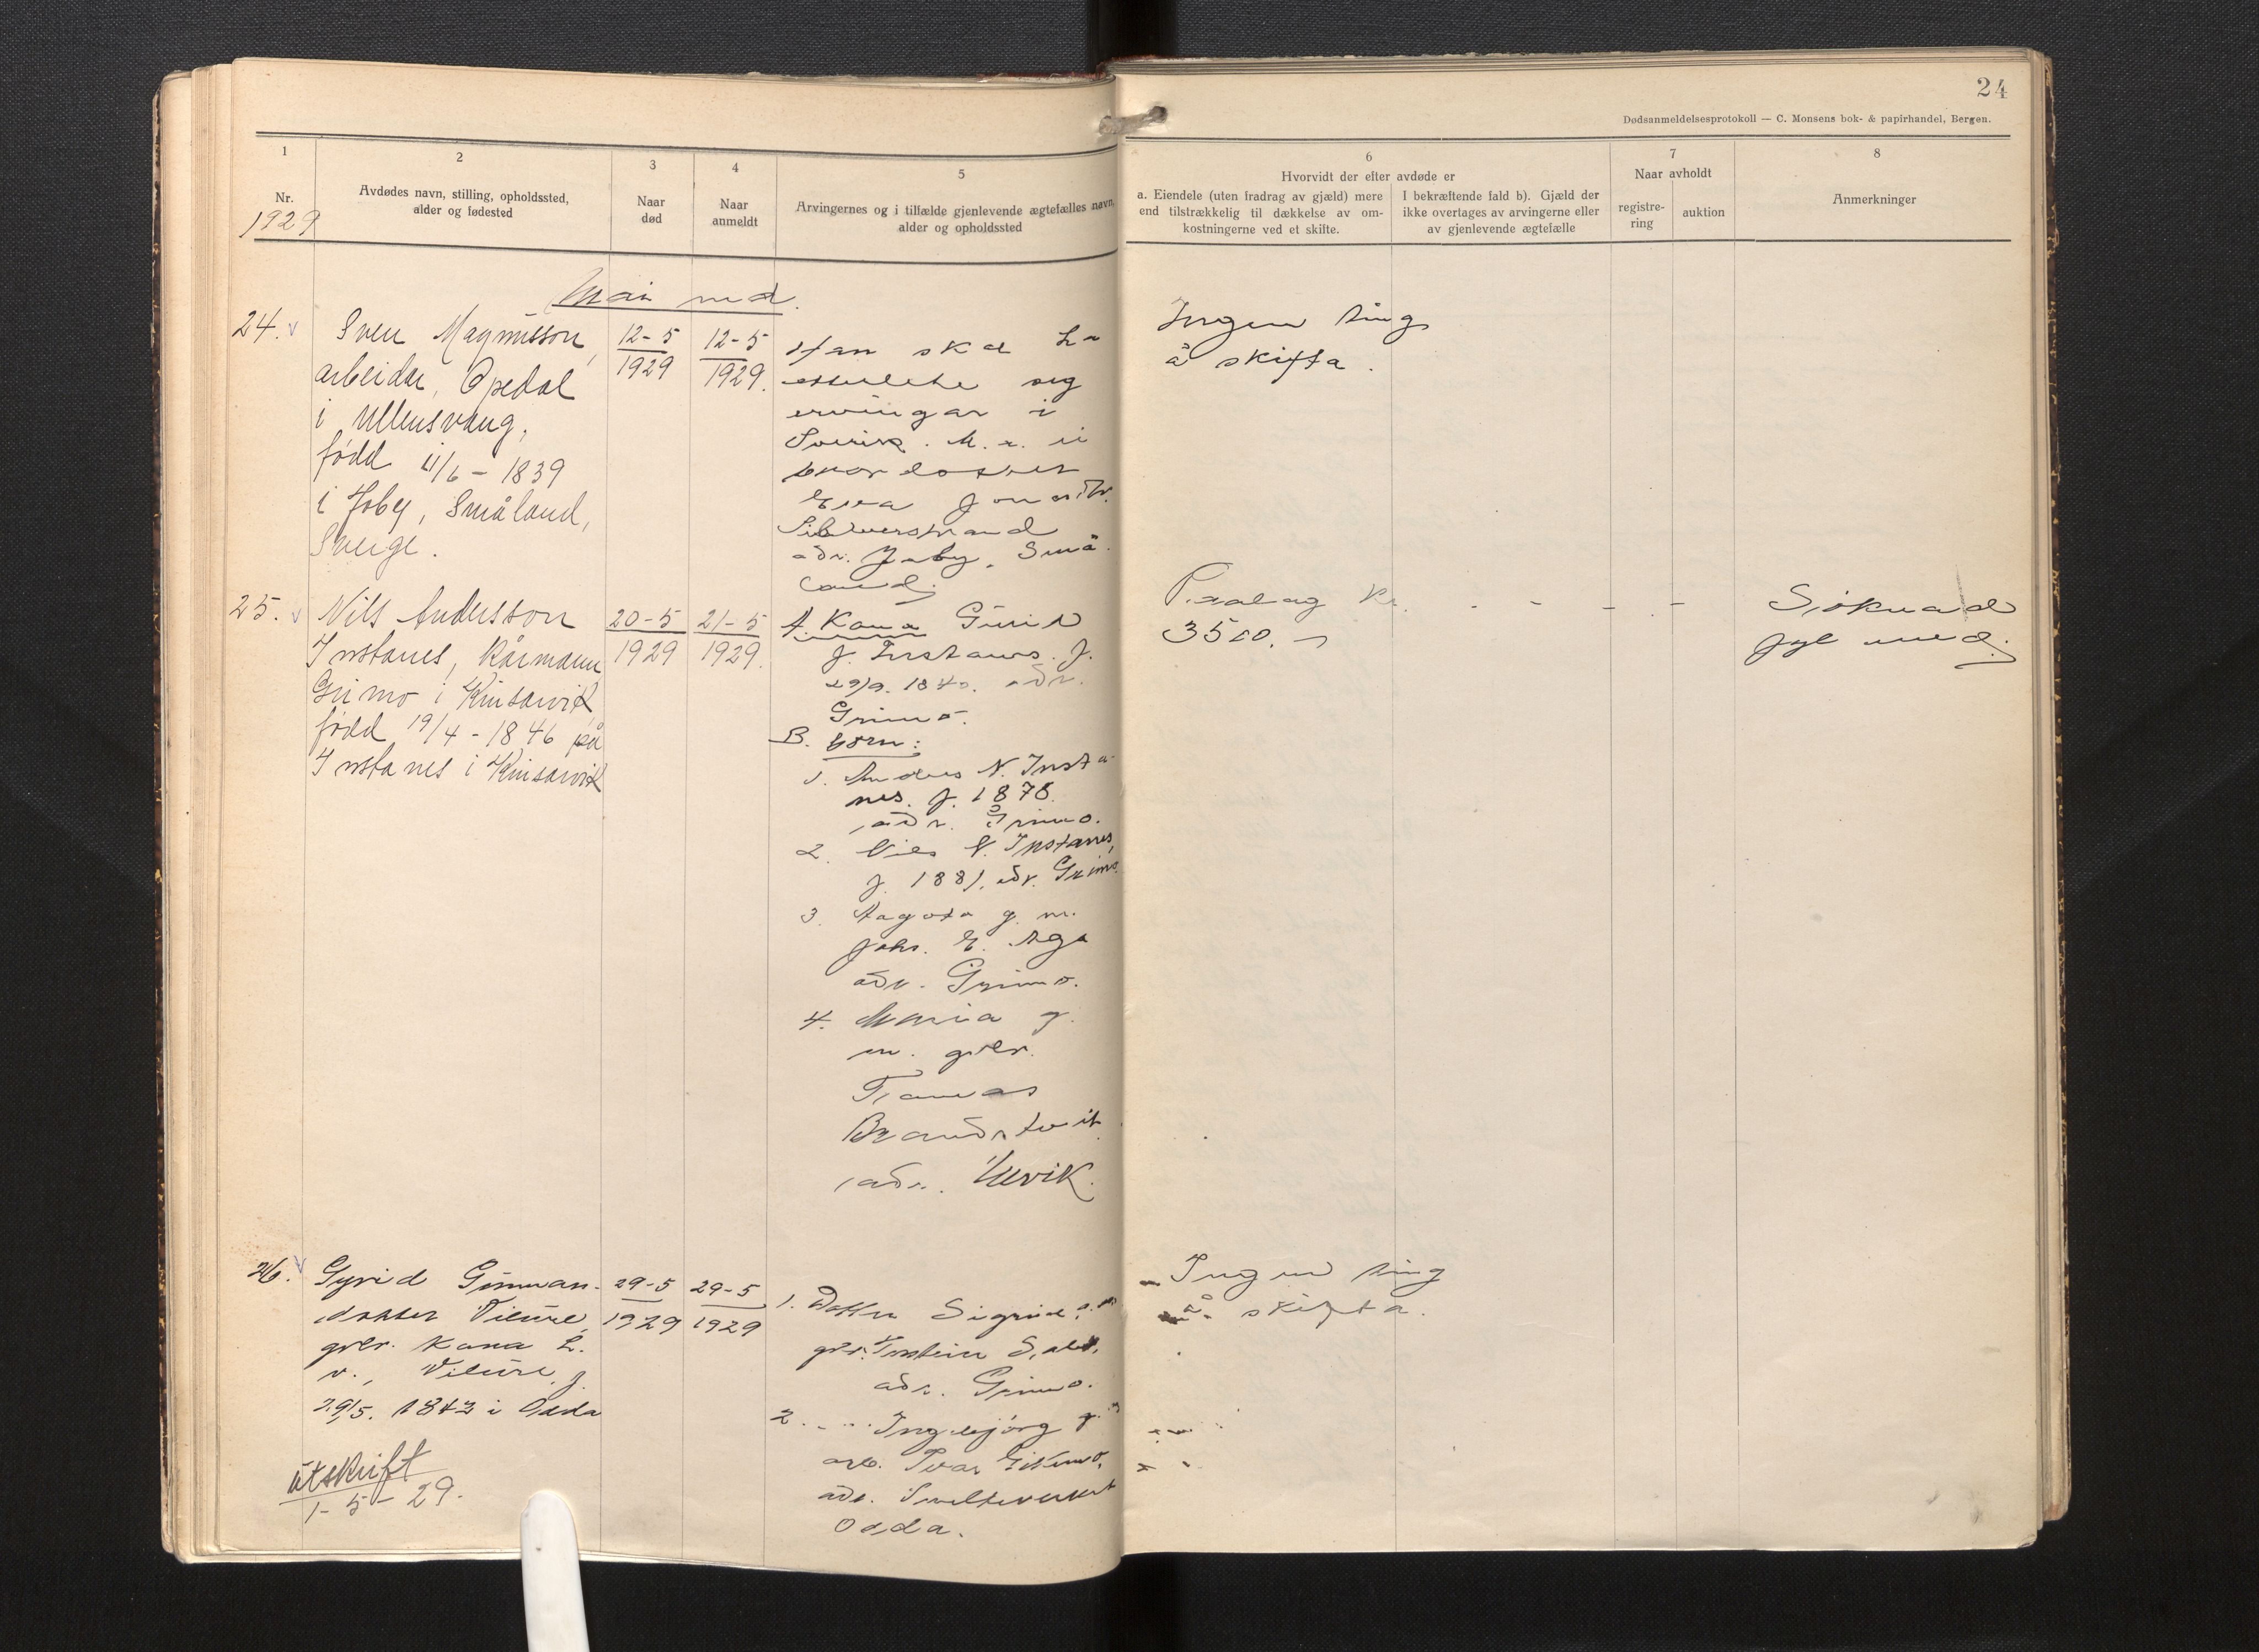 24
Dødsanmeldelsesprotokoll — C. Monsens bok- & papirhandel, Bergen.
1
Nr.
1929
2
Avdødes navn, stilling, opholdssted,
alder og fødested
3
Naar
død
4
Naar
anmeldt
5
Arvingernes og i tilfælde gjenlevende ægtefælles navn,
alder og opholdssted
6
Hvorvidt der efter avdøde er
a. Eiendele (uten fradrag av gjæld) mere
end tilstrækkelig til dækkelse av om-
kostningerne ved et skifte.
I bekræftende fald b). Gjæld der
ikke overtages av arvingerne eller
av gjenlevende ægtefælle
7
Naar avholdt
registre-
ring
auktion
8
Anmerkninger
Mai
24.
Sven Magnusson,
arbeidar, Opedal
i Ullensvang,
född 11/6 - 1839
i Joby, Småland,
Sverige.
12-5
1929
12-5
1929.
Han skal ha
etterlete seg
ervingar i
Sverike. M. a. ei
brordotter
Eva
Silverstrand
adr. Jaby, Små-
land.
Ingen ting
å skifta.
25.
Nils Andersson
Instanes, kårmann
Grimo i Kinsarvik
född 19/4 - 1846 på
Instanes i Kinsarvik
20-5
1929
21-5
1929.
A. Kona Guri
f. Instanes. f.
29/9. 1840. adr.
Grimo.
B. born:
1. Anders N. Insta-
nes. f. 1878.
adr. Grimo.
2. Nils N. Instanes,
f. 1881. adr. Grimo.
3. Aagota g. m.
Johs. E. Aga
adr. Grimo.
4. Maria g.
m. gbr.
Tomas
Brandstveit
adr. Ulvik.
kr.
3500.-
Söknad
fyl med.
26.
Gyrid Gunnars-
dotter Vilure,
gbr. kona h.
v. Vilure, f.
29/5. 1843 i Odda
29-5
1929
29-5
1929
1. Dotter Sigrid, g. m.
gbr. Torstein
adr. Grimo.
2. - " - Ingebjörg g. m.
arb. Ivar Eikemo,
adr. Smelteverket
Odda.
Ingen ting
å skifta.
utskrift
1-5-29.